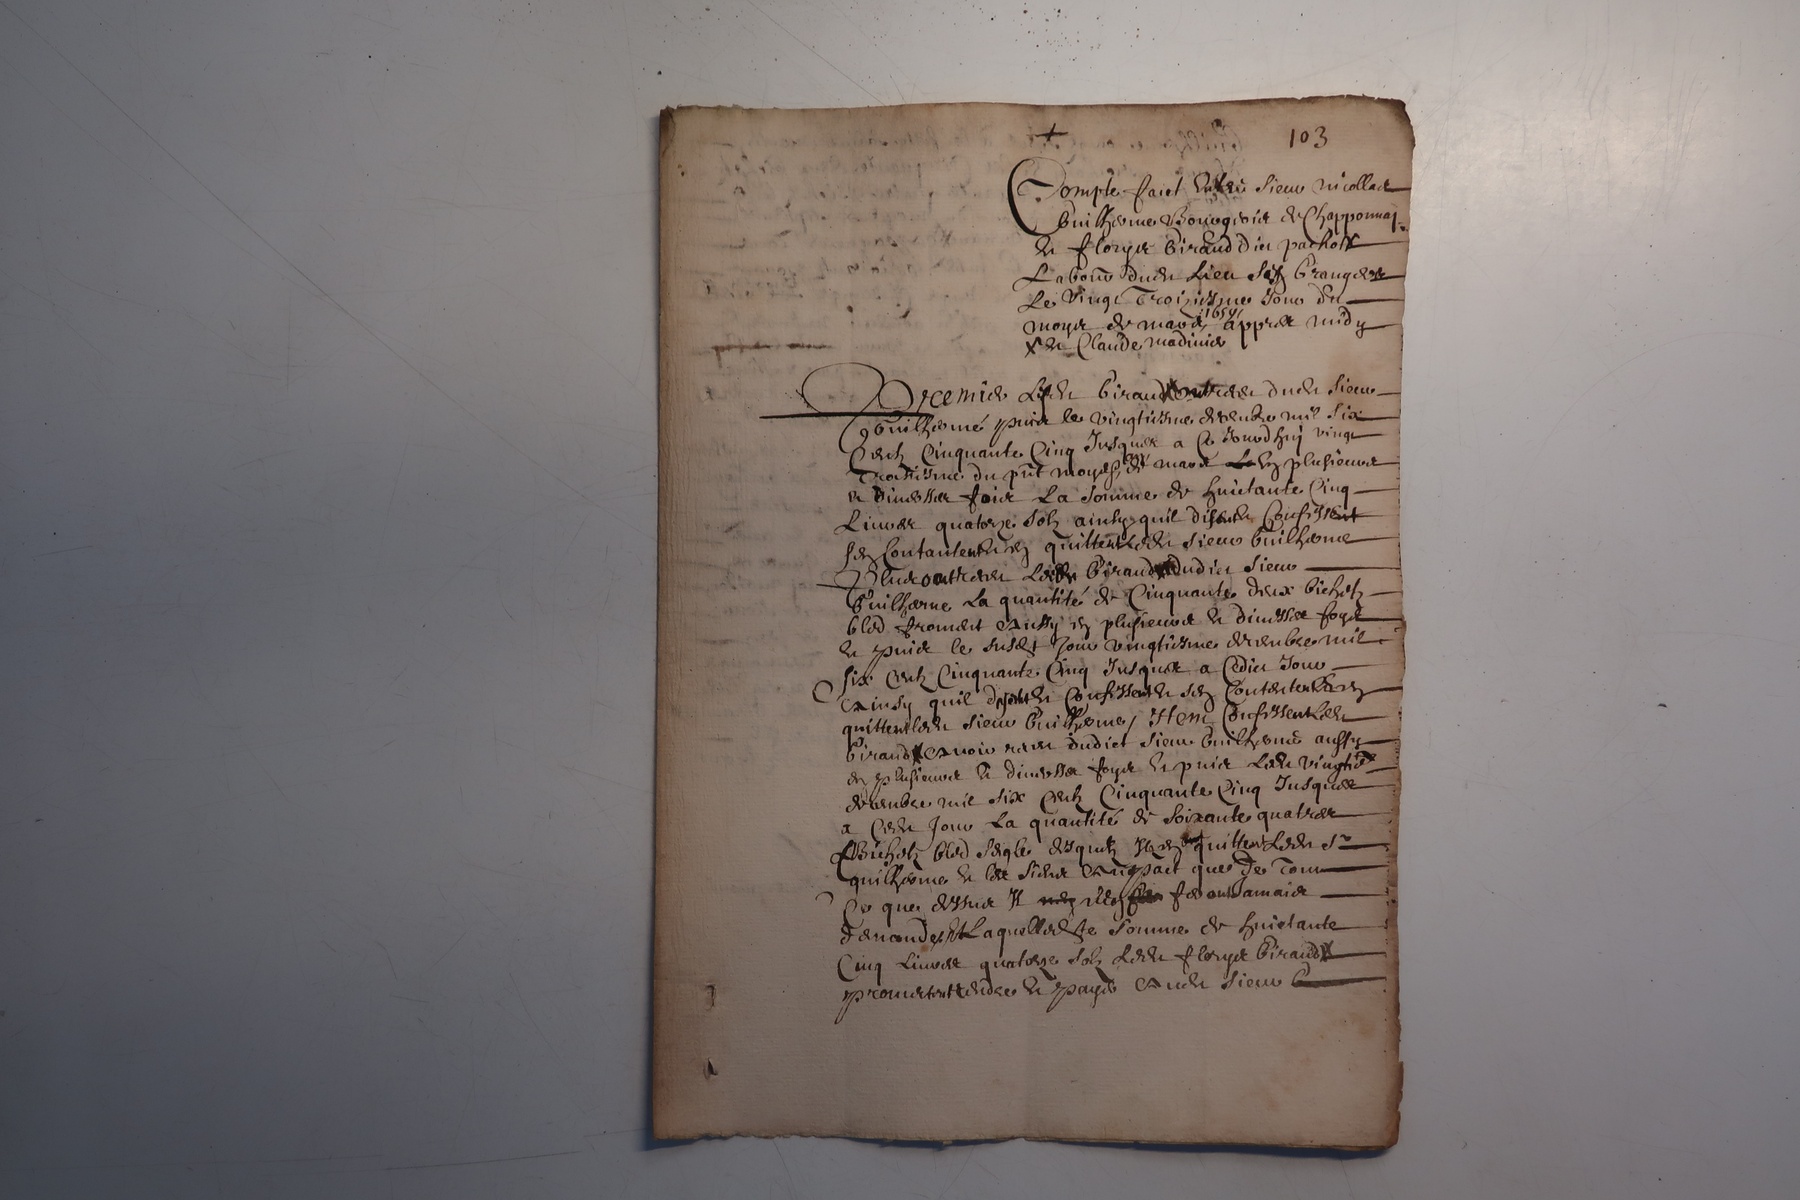 103
Compte faict entre sieur nicollas
Guilherme Bourgeois de Chapponnay
et Giraud dict pachot
Laboureur dudit Lieu Grangier
Le vingt Troiziesme Jour du
moys de mars 1659 appres midy
et Claude madinier
Premier Ledit Giraud dudit sieur
Guilherme puis le vingtiesme decembre mil six
Centz Cinquante Cinq Jusques a Ce Jourdhuy vingt
Troisiesme du pnt moys de mars en plusieurs
et diverses fois La somme de huictante Cinq
Livres quatorze solz ainsy quil Confessent
sen Contantent et en quittent ledit sieur Guilherme
Plus ont receu Ledit Giraud dudict sieur
Guilherme La quantité de Cinquante deux bichetz
bled froment aussy en plusieurs et diverses foys
et puis le susdit Jour vingtiesme decembre mil
six Centz Cinquante Cinq Jusques a Cedict Jour
ainsy quil Confessent et sen Contentent et en
quittent ledit sieur Guilherme / Item Confessent ledit
Giraud avoir receu dudict sieur Guilherme aussy
en plusieurs et diverses foys et puis Ledit vingtie
decembre mil six Centz Cinquante Cinq Jusques
a Cedit Jour La quantité de soixante quattre
Bichetz bled segle desquelz Il en quittent Ledit sr
guilherme et les siens avec pact que de Tout
Ce que dessus Il nen feront Jamais
demandes Laquelle somme de huictante
Cinq Livres quatorze solz Ledit Giraud
promettent rendre et payer audit sieur G